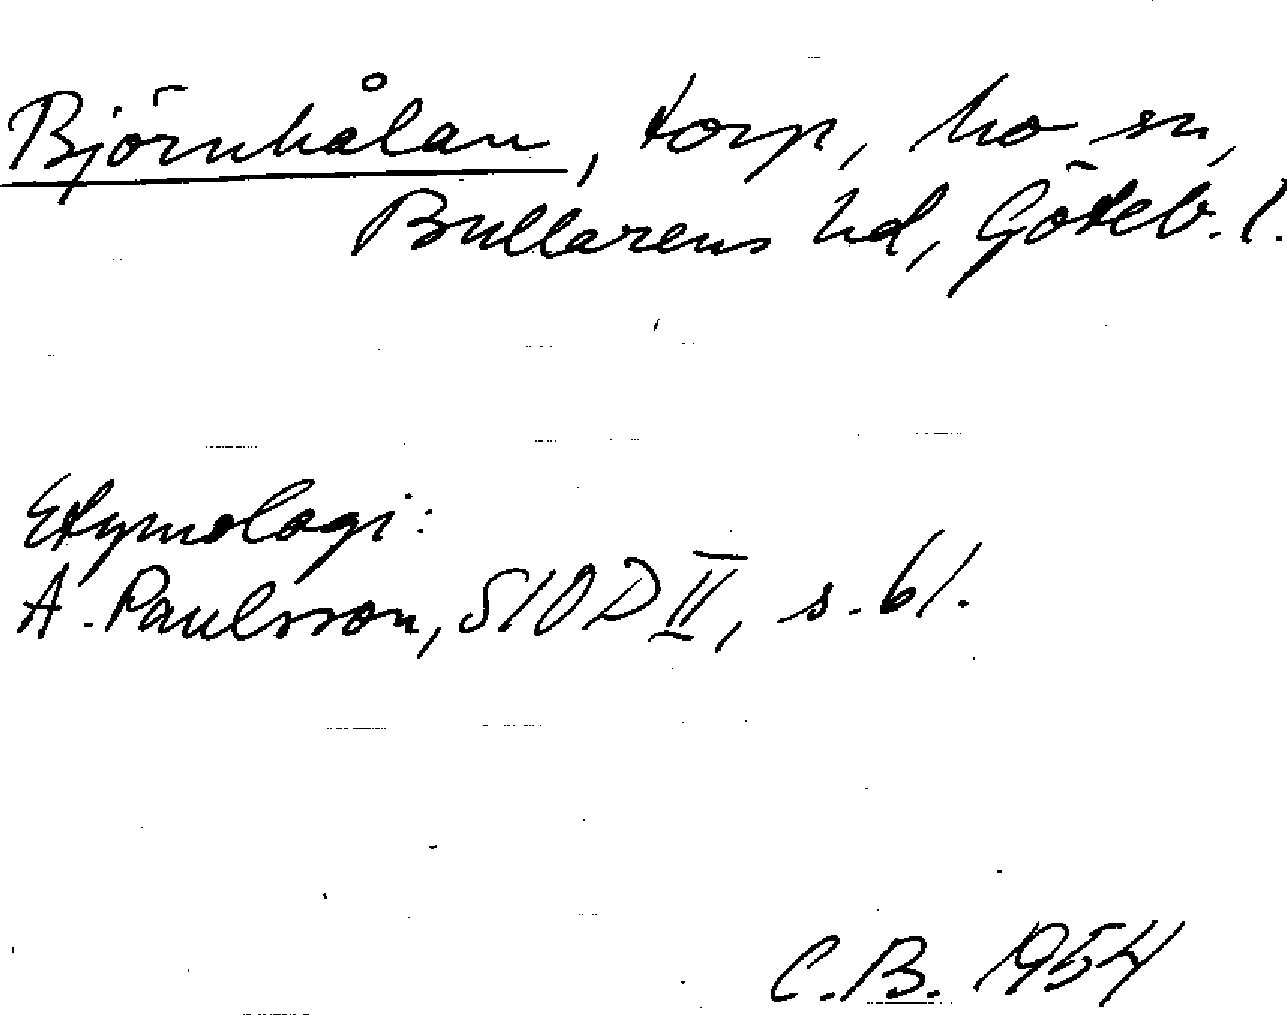 Björnhålan, torp, Mo sn,
Bullarens hd, Göteb. l.
Etymologi:
A. Paulsson, SIOD II, s. 61.
C.B. 1954